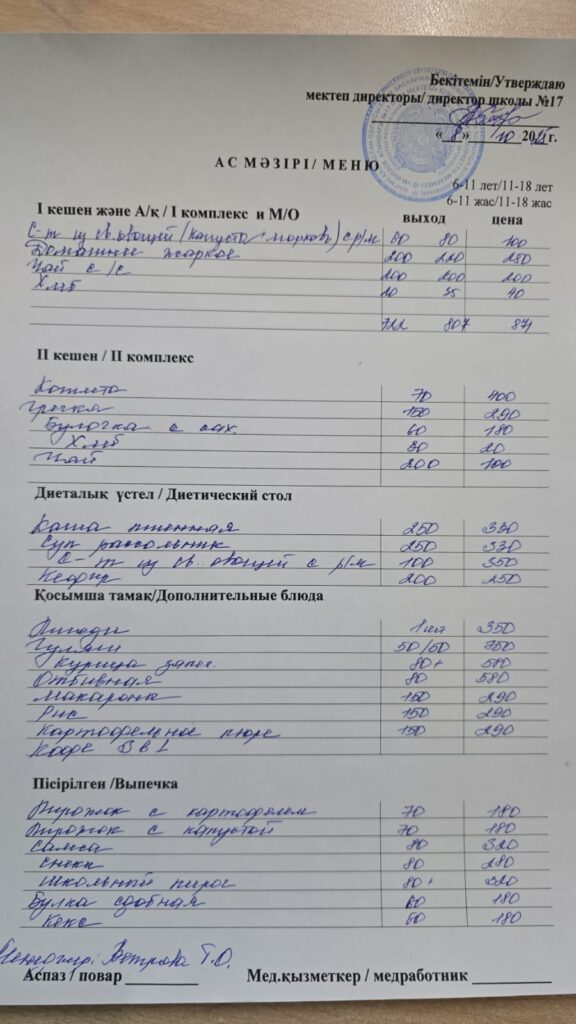 Бекітемін/Утверждаю
мектеп директоры/ директор школы №17
« 8 » 10 2025 г.
АС МӘЗІРІ/ МЕНЮ
6-11 лет/11-18 лет
6-11 жас/11-18 жас
І кешен және А/қ / I комплекс и М/О выход цена
С-т из св. овощей (капуста + морковь) с р/м 60 80 100
Домашнее жаркое 200 220 250
Чай с/с 200 200 200
Хлеб 20 35 40
722 807 871
ІІ кешен / II комплекс
Котлета 70 400
Гречка 150 290
Булочка с сах. 60 180
Хлеб 30 20
Чай 200 100
Диеталық үстел / Диетический стол
Каша пшенная 250 330
Суп рассольник 250 330
С-т из св. овощей с р/м 100 350
Кефир 200 250
Қосымша тамақ/Дополнительные блюда
1 шт 350
Гуляш 50/50 750
Курица запеч. 80+ 580
Отбивная 80 580
Макароны 150 290
Рис 150 290
Картофельное пюре 150 290
Кофе 3 в 1
Пісірілген /Выпечка
Пирожок с картофелем 70 180
Пирожок с капустой 70 180
Самса 80 320
80 280
Школьный пирог 80+ 320
Булка сдобная 60 180
Кекс 60 180
Т.О.
Аспаз / повар Мед.қызметкер / медработник